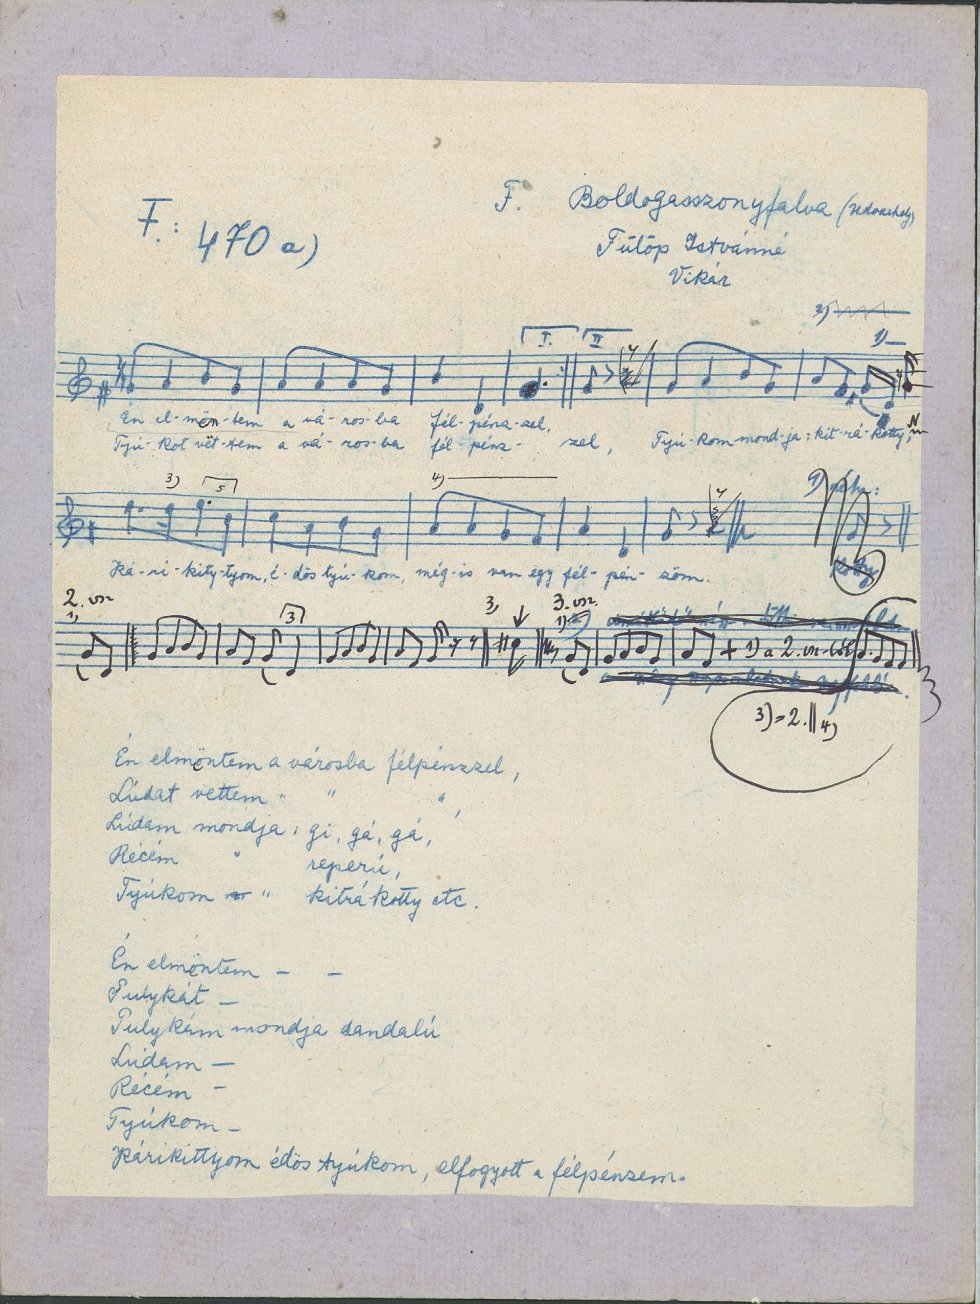 F.: 470 a)
F. Boldogasszonyfalva (Udvarhely)
Fülöp Istvánné
Vikár
2)
1)
I. II
Én el-mön-tem a vá-ros-ba fél-pénz-zel,
Tyú-kot vöt-tem a vá-ros-ba fél pénz-zel, Tyú-kom mond-ja: kit-rá-kotty,
3) 5 4) 1)
Ká-ri-kity-tyom, é-dös tyú-kom, még-is van egy fél-pén-zöm.
2. vsz. 3, 3. vsz.
1, 3 1) + 1) a 2. vsz-ból
3) = 2. 4,
Én elmöntem a városba félpénzzel,
Lúdat vettem " " ",
Lúdam mondja: gi, gá, gá,
Récém " reperú,
Tyúkom " kitrákotty etc.
Én elmöntem – –
Pulykát –
Pulykám mondja dandalú
Lúdam –
Récém –
Tyúkom –
Kárikittyom édös tyúkom, elfogyott a félpénzem.